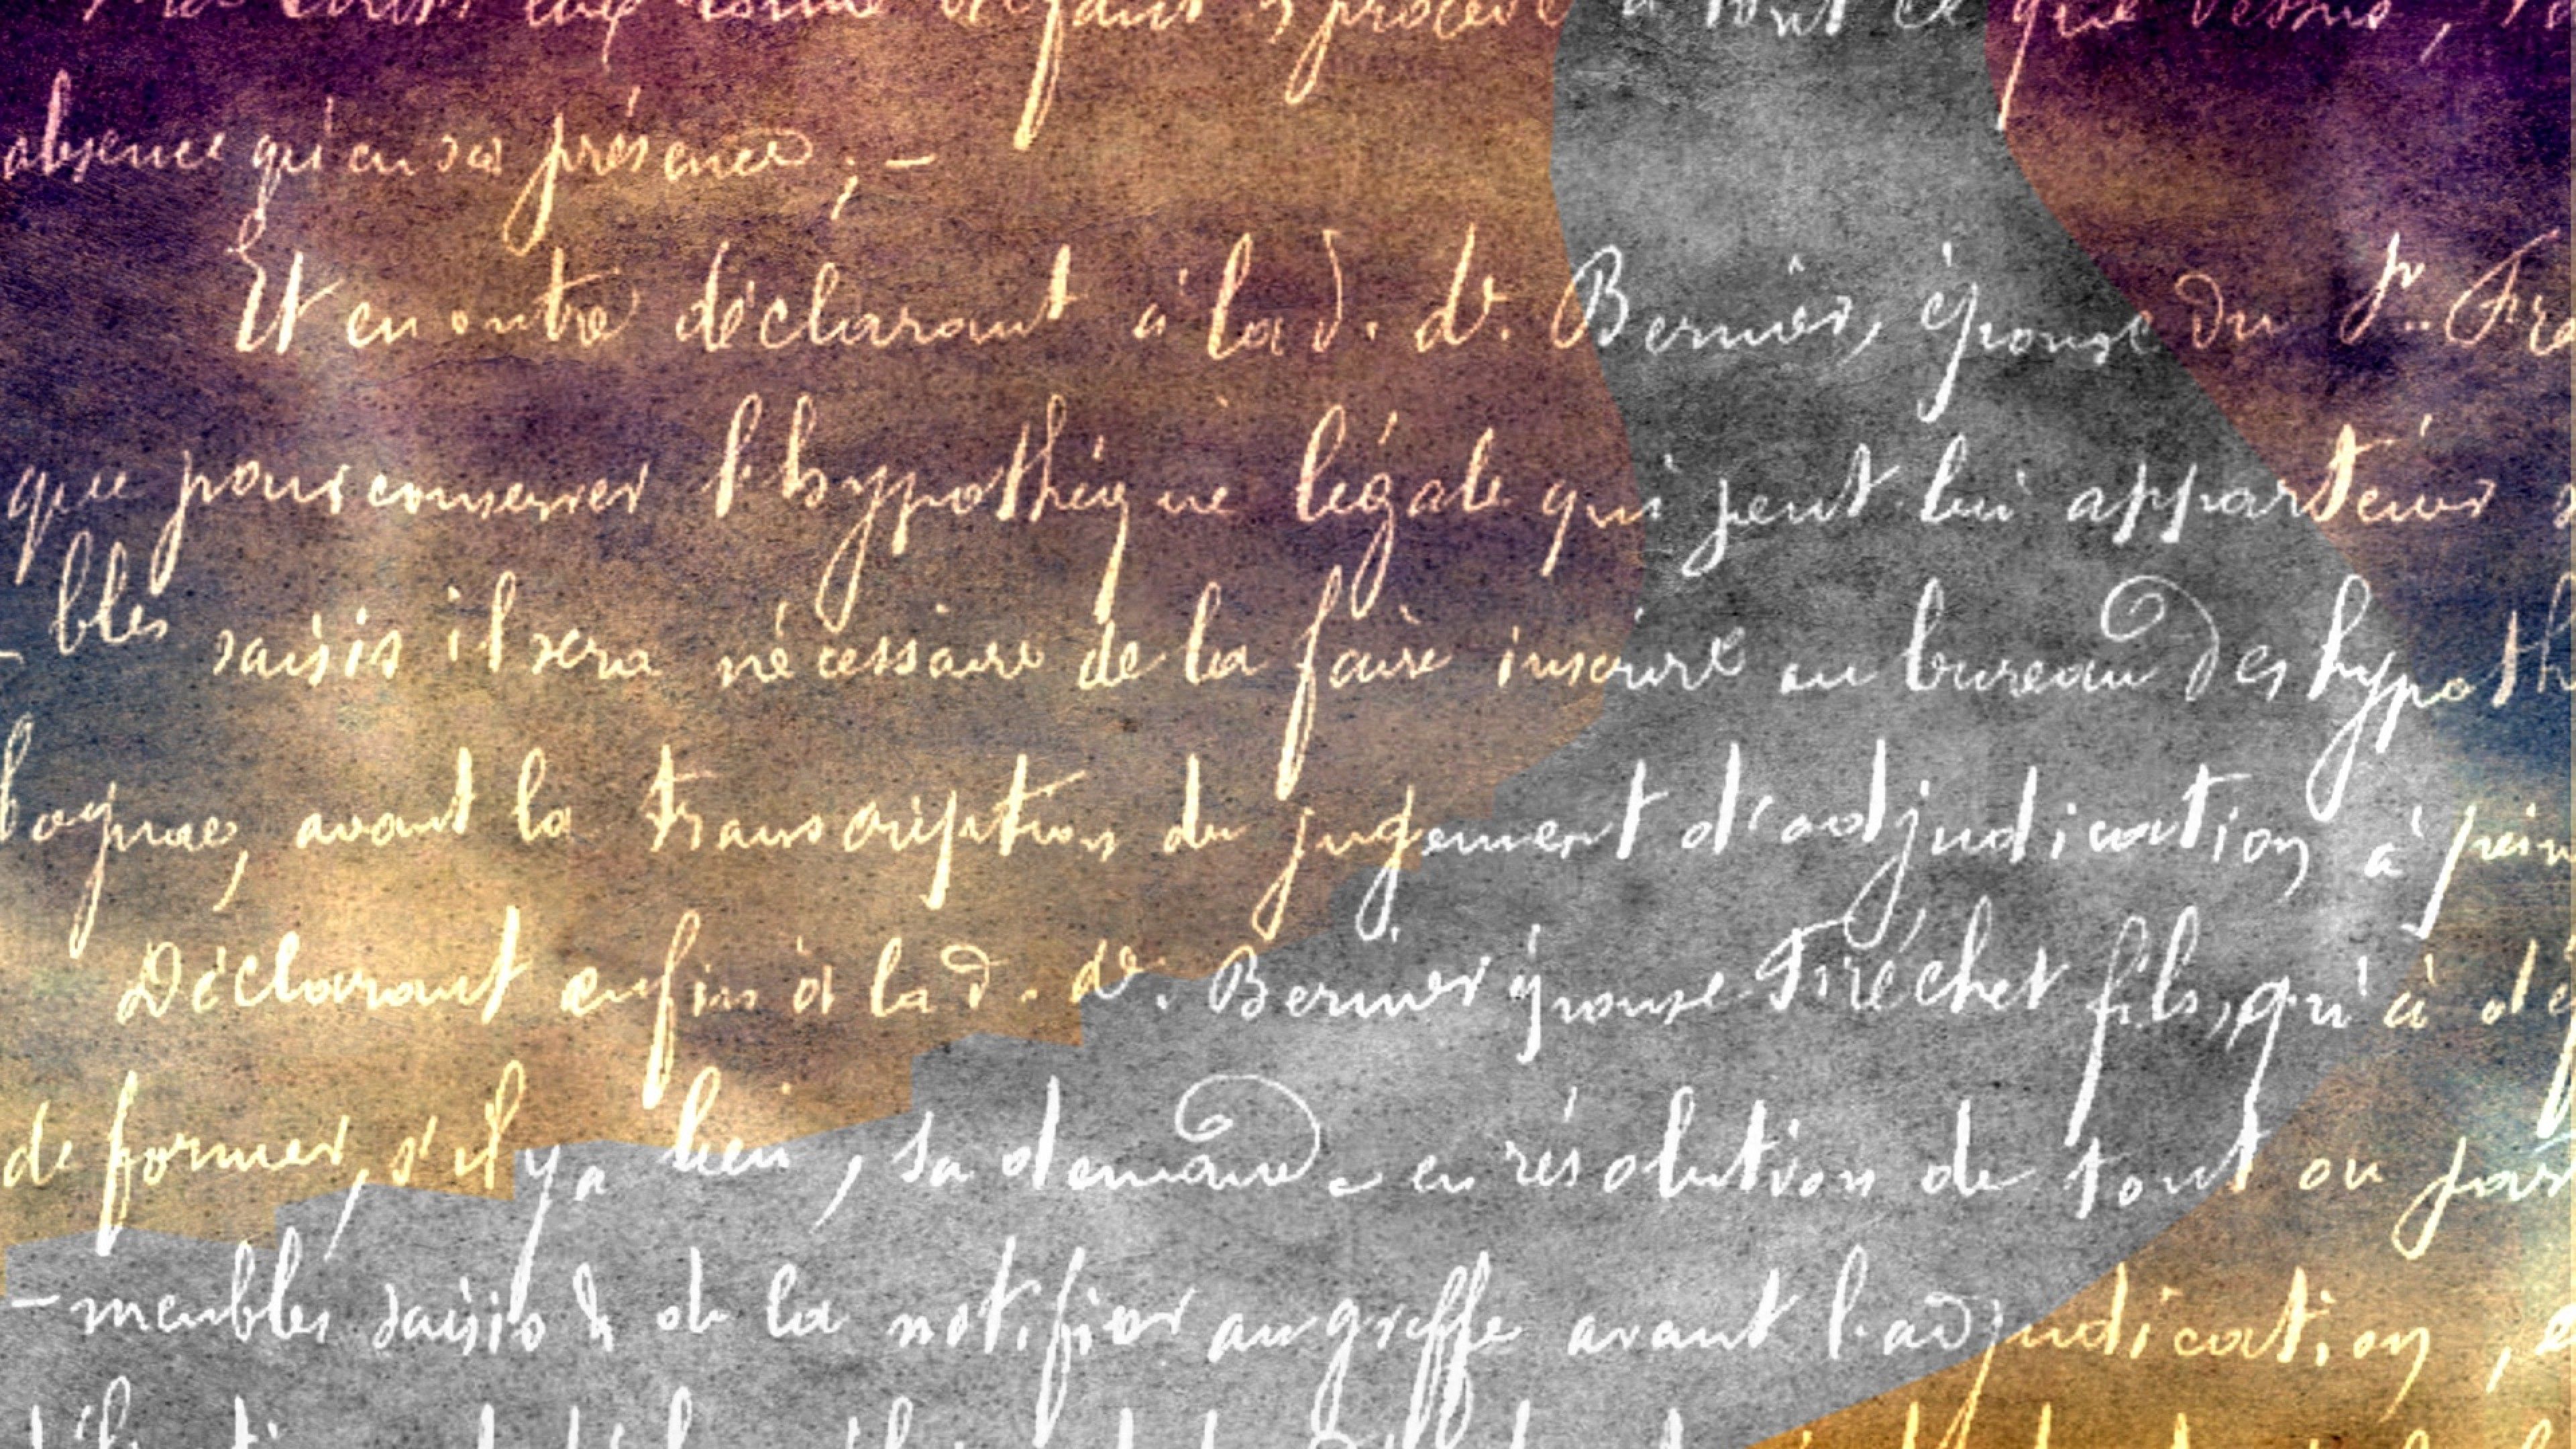 à tout ce que dessus,
absence qu'en sa présence ; —
Et en outre déclarant à la d. de. Bernier, épouse du Sr. Fré
que pour conserver l'hypothèque légale qui peut lui appartenir s
- bles saisis il sera nécessaire de la faire inscrire au bureau des hypoth
avant la transcription du jugement d'adjudication à pein
Déclarant enfin à la d. de. Bernier épouse Fréchet fils, qu'à dé
de former, s'il y a lieu, sa demande en résolution de tout ou par
- meubles saisis & de la notifier au greffe avant l'adjudication,